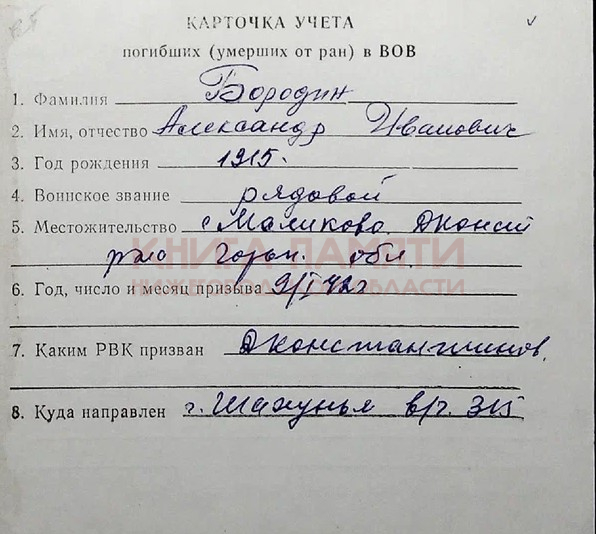 КАРТОЧКА УЧЕТА
погибших (умерших от ран) в ВОВ
1. Фамилия Бородин
2. Имя, отчество Александр Иванович
3. Год рождения 1915.
4. Воинское звание рядовой
5. Местожительство с Маликово Дконст
р-на Горьк. обл.
КНИГА ПАМЯТИ
НИЖЕГОРОДСКОЙ ОБЛАСТИ
6. Год, число и месяц призыва 9/I 42 г
7. Каким РВК призван Дконстантинов.
8. Куда направлен г. Шахунья в/ч. 315